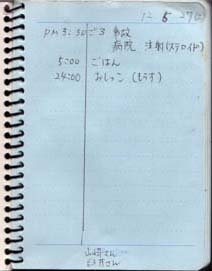 12. 5. 27(
PM 3:30ごろ 事故
病院 注射(ステロイド)
5:00 ごはん
24:00 おしっこ (もらす)
山崎さん
臼井さん